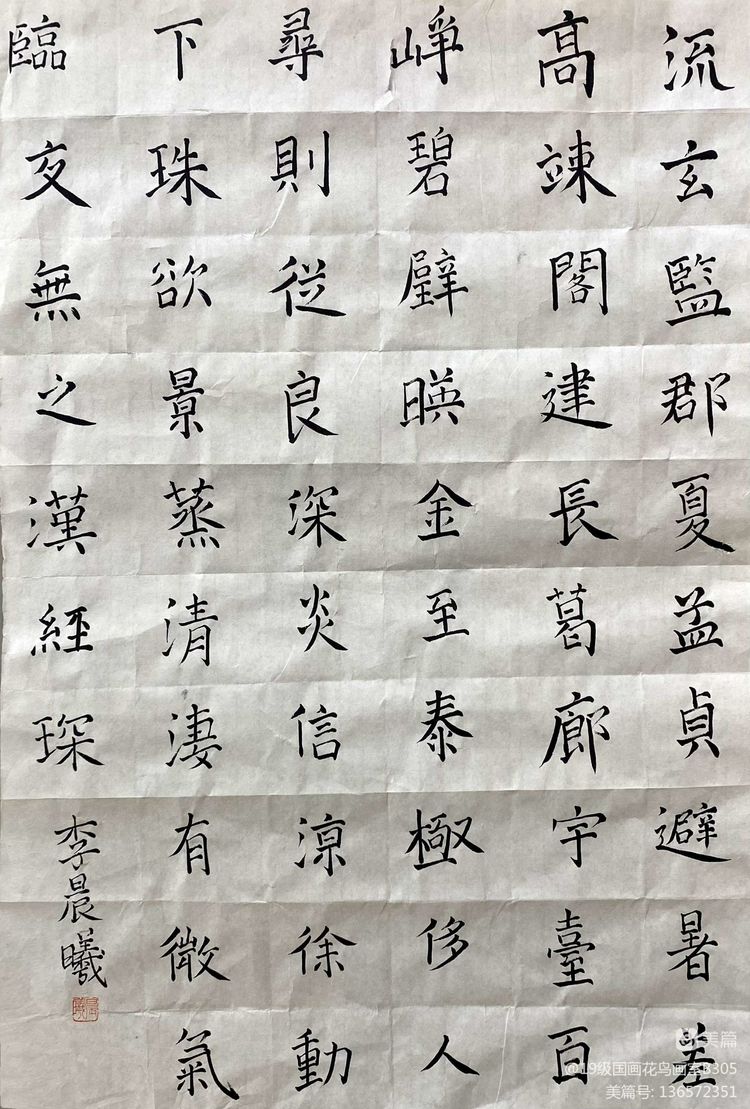 流玄監郡夏盖貞避暑差
高竦閣建長葛廊宇臺百
崢碧壁暎金至泰極侈人
尋則従良深炎信涼徐動
下珠欲景蒸清淒有微氣
臨交無之漢經琛
李晨曦
美篇
@19级国画花鸟画室B305
美篇号: 136572351